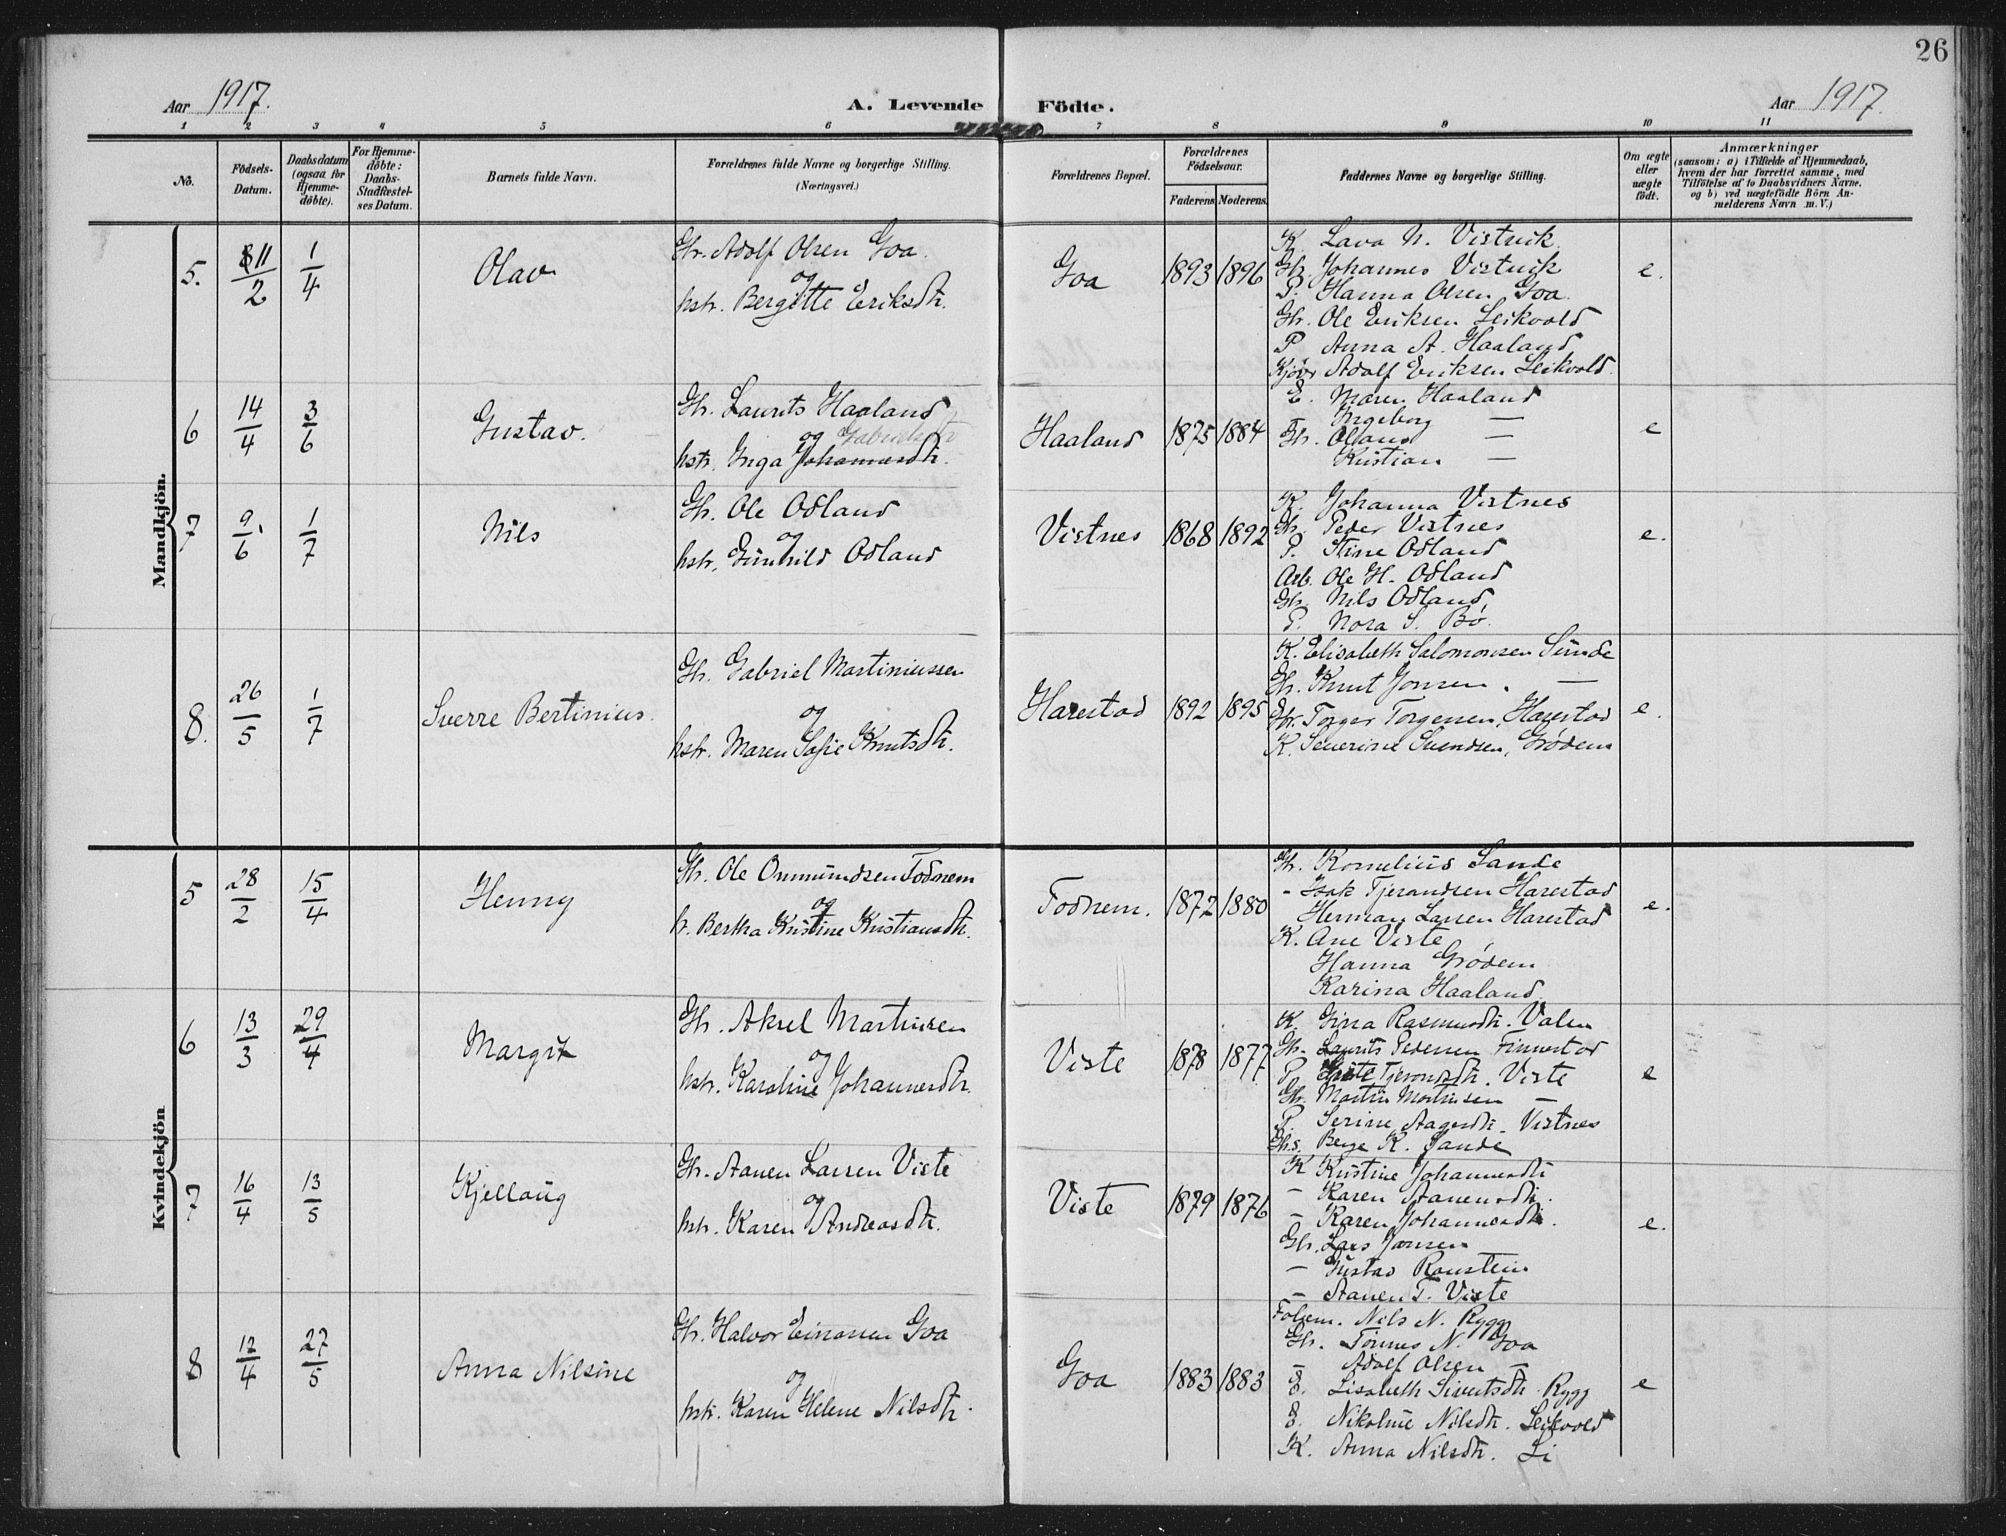 26
Aar 1917. A. Levende Födte. Aar 1917.
1 2 3 4 5 6 7 8 9 10 11
No. Födsels-Datum. Daabsdatum (ogsaa for Hjemme-döbte). For Hjemme-döbte: Daabs-Stadfæstel-ses Datum. Barnets fulde Navn. Forældrenes fulde Navne og borgerlige Stilling. (Næringsvei.) Forældrenes Bopæl. Forældrenes Födselsaar. Faderens. Moderens. Faddernes Navne og borgerlige Stilling. Om ægte eller uægte födt. Anmærkninger (saasom: a) i Tilfælde af Hjemmedaab, hvem der har forrettet samme, med Tilföielse af to Daabsvidners Navne, og b) ved uægtefödte Börn An-melderens Navn m. V.)
Mandkjön.
5. 11/2 1/4 Olav
Gbr. Adolf Olsen Goa.
og
hstr. Bergitte Eriksdtr.
Goa 1893 1896
K. Lava N. Vistvik
Gbr. Johannes Vistvik
P. Hanna Olsen Goa.
Gbr. Ole Eriksen Leikvold
P Anna A. Haaland
Kjövr Adolf Eriksen Leikvold.
e.
6 14/4 3/6 Gustav.
Gbr. Laurits Haaland
og Gabrielsdtr
hstr. Inga Johannesdtr.
Haaland 1875 1884
E. Maren Haaland
Ingeborg —
Gbr. Olaus —
Kristian —
e
7 9/6 1/7 Nils
Gbr. Ole Odland
og
hstr. Gunhild Odland
Vistnes 1868 1892
K. Johanna Vistnes
Gbr. Peder Vistnes
P. Stine Odland
Arb. Ole H. Odland
Gbr. Nils Odland
P. Nora S. Bö.
e.
8. 26/5 1/7 Sverre Bertinius.
Gbr. Gabriel Martiniussen
og
hstr. Maren Sofie Knutsdtr.
Harestad 1892 1895
K. Elisabeth Salomonsen Sunde
Gbr. Knut Jonsen. —
Gbr. Torger Torgersen, Harestad
K. Severine Svendsen, Grödem
e.
Kvindekjön
5 28/2 15/4 Henny
Gbr. Ole Ommundsen Todnem
og
h. Bertha Kristine Kristiansdtr.
Todnem. 1872 1880
Gbr. Kornelius Sande
- Isak Tjerandsen Harestad
Herman Larsen Harestad
K. Ane Viste
Hanna Grödem
Karina Haaland
e.
6 13/3 29/4 Margit
Gbr. Aksel Martinsen
og
hstr. Karoline Johannesdtr.
Viste 1878 1877
K. Gina Rasmusdtr. Valen
Gbr. Laurits Pedersen Finnestad
P. Tjerandsdtr. Viste
Gbr. Martin Martinsen —
P. Serine Aagesdtr. Vistnes
Gbrs. Berge K. Sande
e
7 16/4 13/5 Kjellaug
Gbr. Aanen Larsen Viste
og
hstr. Karen Andreasdtr.
Viste 1879 1876
K Kristine Johannesdtr
— Karen Aanensdtr.
— Karen Johannesdtr.
Gbr. Lars Jansen
— Gustav Ranstein
— Aanen T. Viste
e.
8 12/4 27/5 Anna Nilsine
Gbr. Halvor Einarsen Goa
og
hstr. Karen Helene Nilsdtr.
Goa 1883 1883
Folem. Nils N. Rygg
Gbr. Tönnes N. Goa
— Adolf Olsen —
E. Lisabeth Sivertsdtr. Rygg
E. Nikoline Nilsdtr. Leikvold
K. Anna Nilsdtr. Li
e